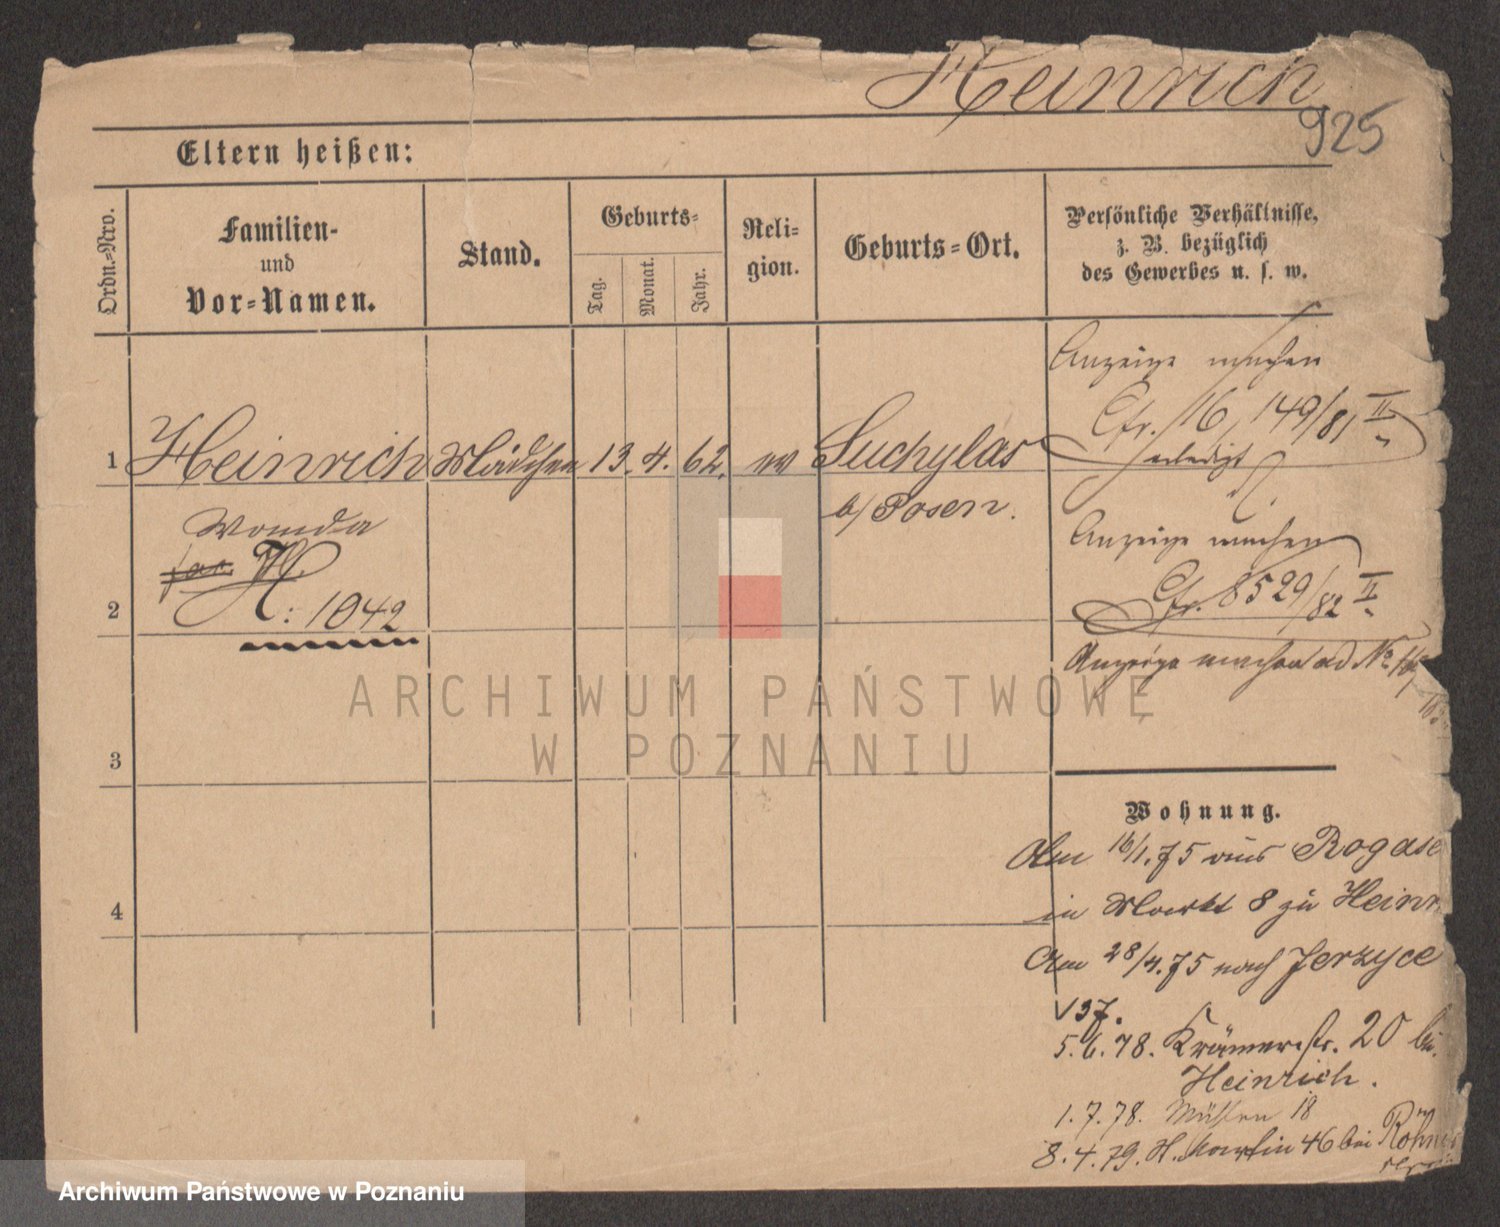 Heinrich
925
Eltern heißen:
Ordn.-Nro.
Familien-
und
Vor-Namen.
Stand.
Geburts-
Tag.
Monat.
Jahr.
Reli-
gion.
Geburts-Ort.
Persönliche Verhältnisse,
z. B. bezüglich
des Gewerbes u. s. w.
Anzeige machen
Cfr. 16,149/81 II
erledigt
1 Heinrich Mädchen 13. 4. 62. ev Suchylas
b/ Posen.
Wanda
H: 1042
Anzeige machen
Cfr. 8529/82 II
2
Anzeige machen ad No
3
Wohnung.
Am 16/1.75 aus Rogase
in Markt 8 zu Heinr
4
Am 28/4.75 nach Jerzyce
137.
5.6.78. Krämerstr. 20 bei
Heinrich.
1.7.78. Mühlen 18
8.4.79. St. Martin 46 bei
ARCHIWUM PAŃSTWOWE
W POZNANIU
Archiwum Państwowe w Poznaniu